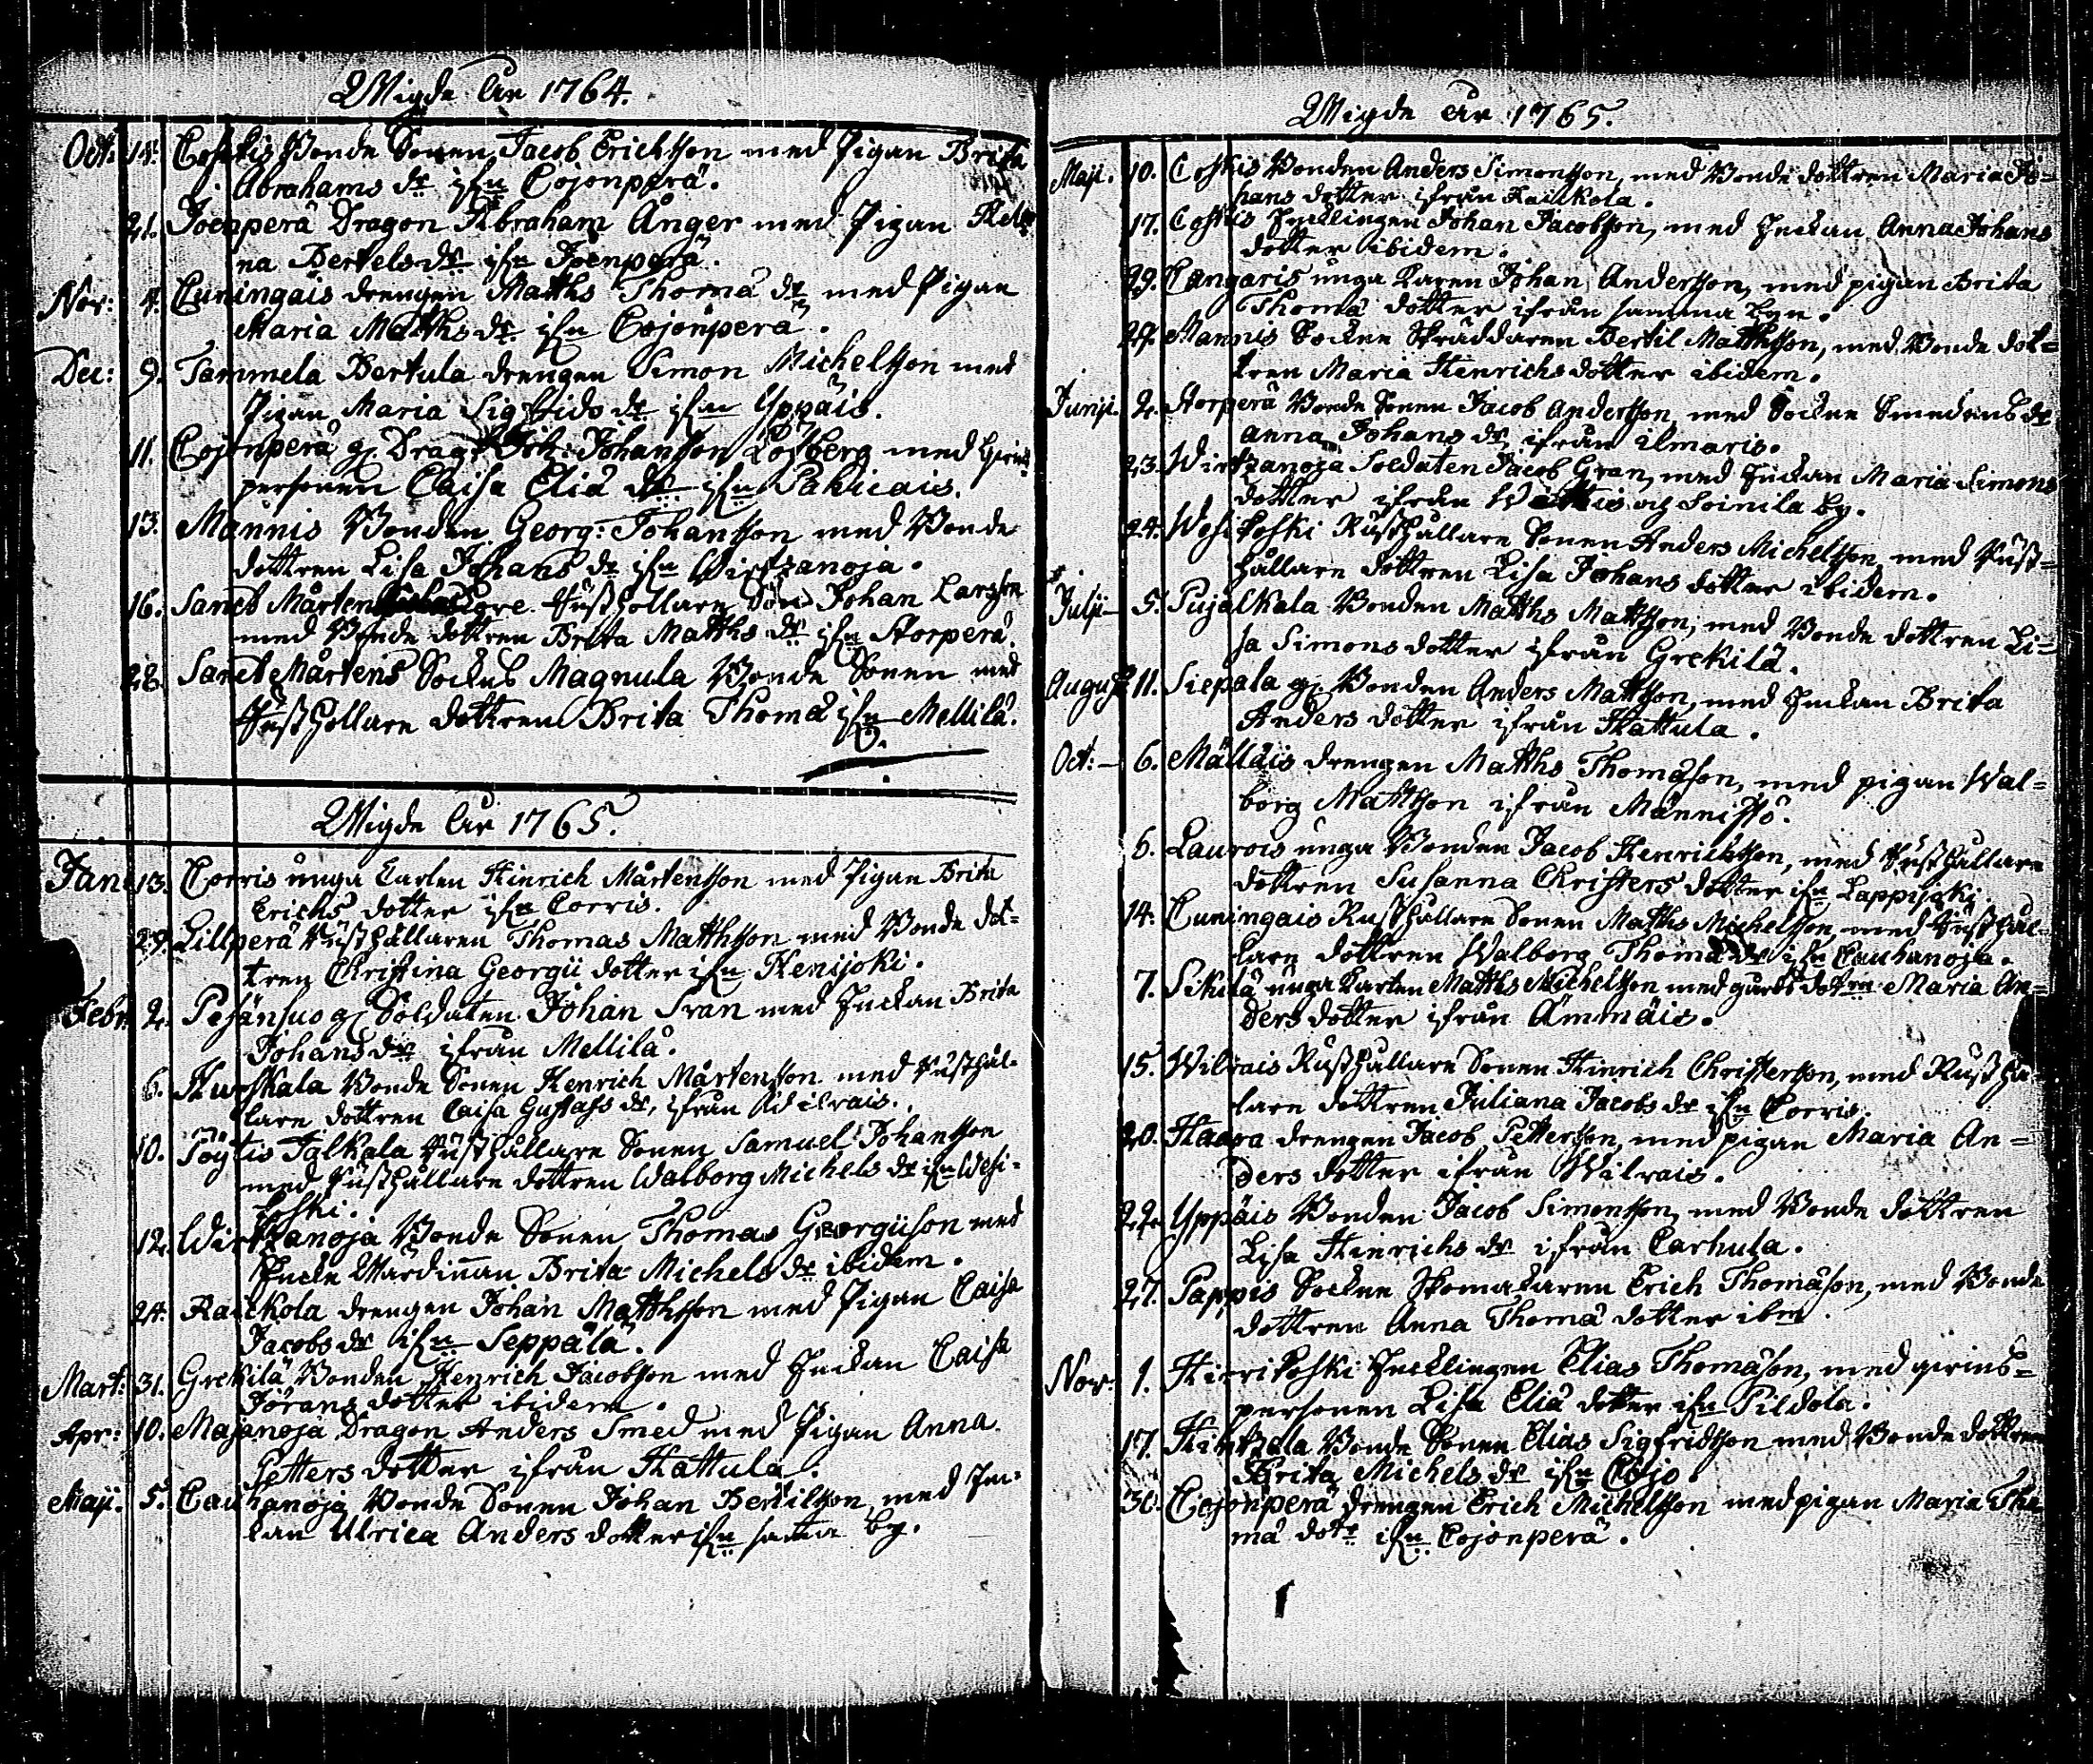 Wigde år 1764.
Oct: 14. Coskis Bonde Sonen Jacob Erichsson med Pigan Brita
Abrahams dr ifrn Cojonperä.
21. Joenperä Dragon Abraham Ånger med Pigan Hele
na Bertels dr ifrn Joenperä.
Nov: 4. Cuningais drengen Matths Thomæ dr med Pigan
Maria Matths dr ifrn Cojonperä.
Dec: 9. Tammela Bertula drengen Simon Michelsson med
Pigan Maria Sigfrids dr ifrn Yppäis.
11. Cojonperä gj. Drag: Joh: Johansson Löfberg med qwins
personen Caisa Eliæ dr ifrn Pahicais.
13. Männis Bonden Georg: Johansson med Bonde
dottren Lisa Johans dr ifrn Wirtzanoja.
16. Sanct Mårtens Rusthollare Son Johan Larsson
med Bonde dottren Brita Matths dr ifrn Storperä.
28. Sanct Mårtens Sockns Magnula Bonde Sonen med
Rusthollare dottren Brita Thomæ ifrn Mellilä.
Wigde år 1765.
Jan: 13. Corris unga Karlen Hinrich Mårtensson med Pigan Brita
Erichs dotter ifrn Corris.
29. Lillperä Rusthållaren Thomas Matthsson med Bonde dot=
tren Christina Georgii dotter ifrn Kenijoki.
Febr: 2. Pesänsuo gj. Soldaten Johan Sran med Enckan Brita
Johans dr ifrån Mellilä.
6. Hurskala Bonde Sonen Henrich Mårtensson med Rusthål=
lare dottren Caisa Gustafs dr, ifrån
10. Pöytis Jalkala Rusthållare Sonen Samuel Johansson
med Rusthållare dottren Walborg Michels dr ifrn Wesi=
koski.
12. Wirtzanoja Bonde Sonen Thomas Georgiison med
Encke Wärdinnan Brita Michels dr ibidem.
24. Raickola drengen Johan Matthsson med Pigan Caisa
Jacobs dr ifrn Seppälä.
Mart: 31. Grekilä Bonden Henrich Jacobsson med Enckan Caisa
Jörans dotter ibidem.
Apr: 10. Majanoja Dragon Anders Smed med Pigan Anna
Petters dotter ifrån Hattula.
Maji. 5. Cauhanoja Bonde Sonen Johan Bertilsson med En=
kan Ulrica Anders dotter ifrn samma by.
Wigde år 1765.
Maji. 10. Coskis Bonden Anders Simonsson, med Bonde dottren Maria Jo=
hans dotter ifrån Raickola.
17. Coskis Enklingen Johan Jacobsson, med Enckan Anna Johans
dotter ibidem.
29. Cangaris unga Karen Johan Andersson, med pigan Brita
Thomæ dotter ifrån samma byn.
29. Mannis Sockne Skräddaren Bertil Matthsson, med Bonde dot=
tren Maria Henrichs dotter ibidem.
Junii. 2. Storperä Bonde Sonen Jacob Andersson med Sockne Smedens dr
Anna Johans dr, ifrån ilmaris.
23. Wirtzanoja Soldaten Jacob Gran, med Enckan Maria Simons
dotter ifrån och Soinila by.
24. Wesikoski Rusthållare Sonen Anders Michelsson, med Rust=
hållare dottren Lisa Johans dotter ibidem.
Julii 5. Pujalkala Bonden Matths Matsson, med Bonde dottren Li=
sa Simons dotter ifrån Grekilä.
August 11. Siepala gj. Bonden Anders Matsson, med Enckan Brita
Anders dotter ifrån Hattula.
Oct: 6. Mälläis drengen Matths Thomæson, med pigan Wal=
borg Mattsson ifrån Männistö.
6. Laurois unga Bonden Jacob Henrichsson, med Rusthållare
dottren Susanna Christers dotter ifrn Lappijoki.
14. Cuningais Rusthållare Sonen Matths Michelsson, med Rusthål=
lare dottren Walborg Thomæ dr ifrn Cauhanoja.
7. Sikilä unga Karlen Matths Michelsson med gards dotren Maria An=
ders dotter ifrån Ämmäis.
15. Wilrais Rusthållare Sonen Hinrich Christersson, med Rusthå
lare dottren Juliana Jacobs dr ifrn Corris.
20. Haara drengen Jacob Pettersson, med pigan Maria An=
ders dotter ifrån Wilrais.
22. Yppäis Bonden Jacob Simonsson, med Bonde dottren
Lisa Hinrichs dr ifrån Carhula.
27. Pappis Sockne Skomakaren Erich Thomæson, med Bonde
dottren Anna Thomæ dotter ibm.
Nov: 1. Hierikoski Encklingen Elias Thomæson, med qwins=
personen Lisa Eliæ dotter ifrn Pildola.
17. Bonde Sonen Elias Sigfridsson med Bonde dottren
Brita Michels dr ifrn Cojo.
30. Cojonperä drengen Erich Michelsson med pigan Maria Tho
mæ dotr ifrn Cojonperä.